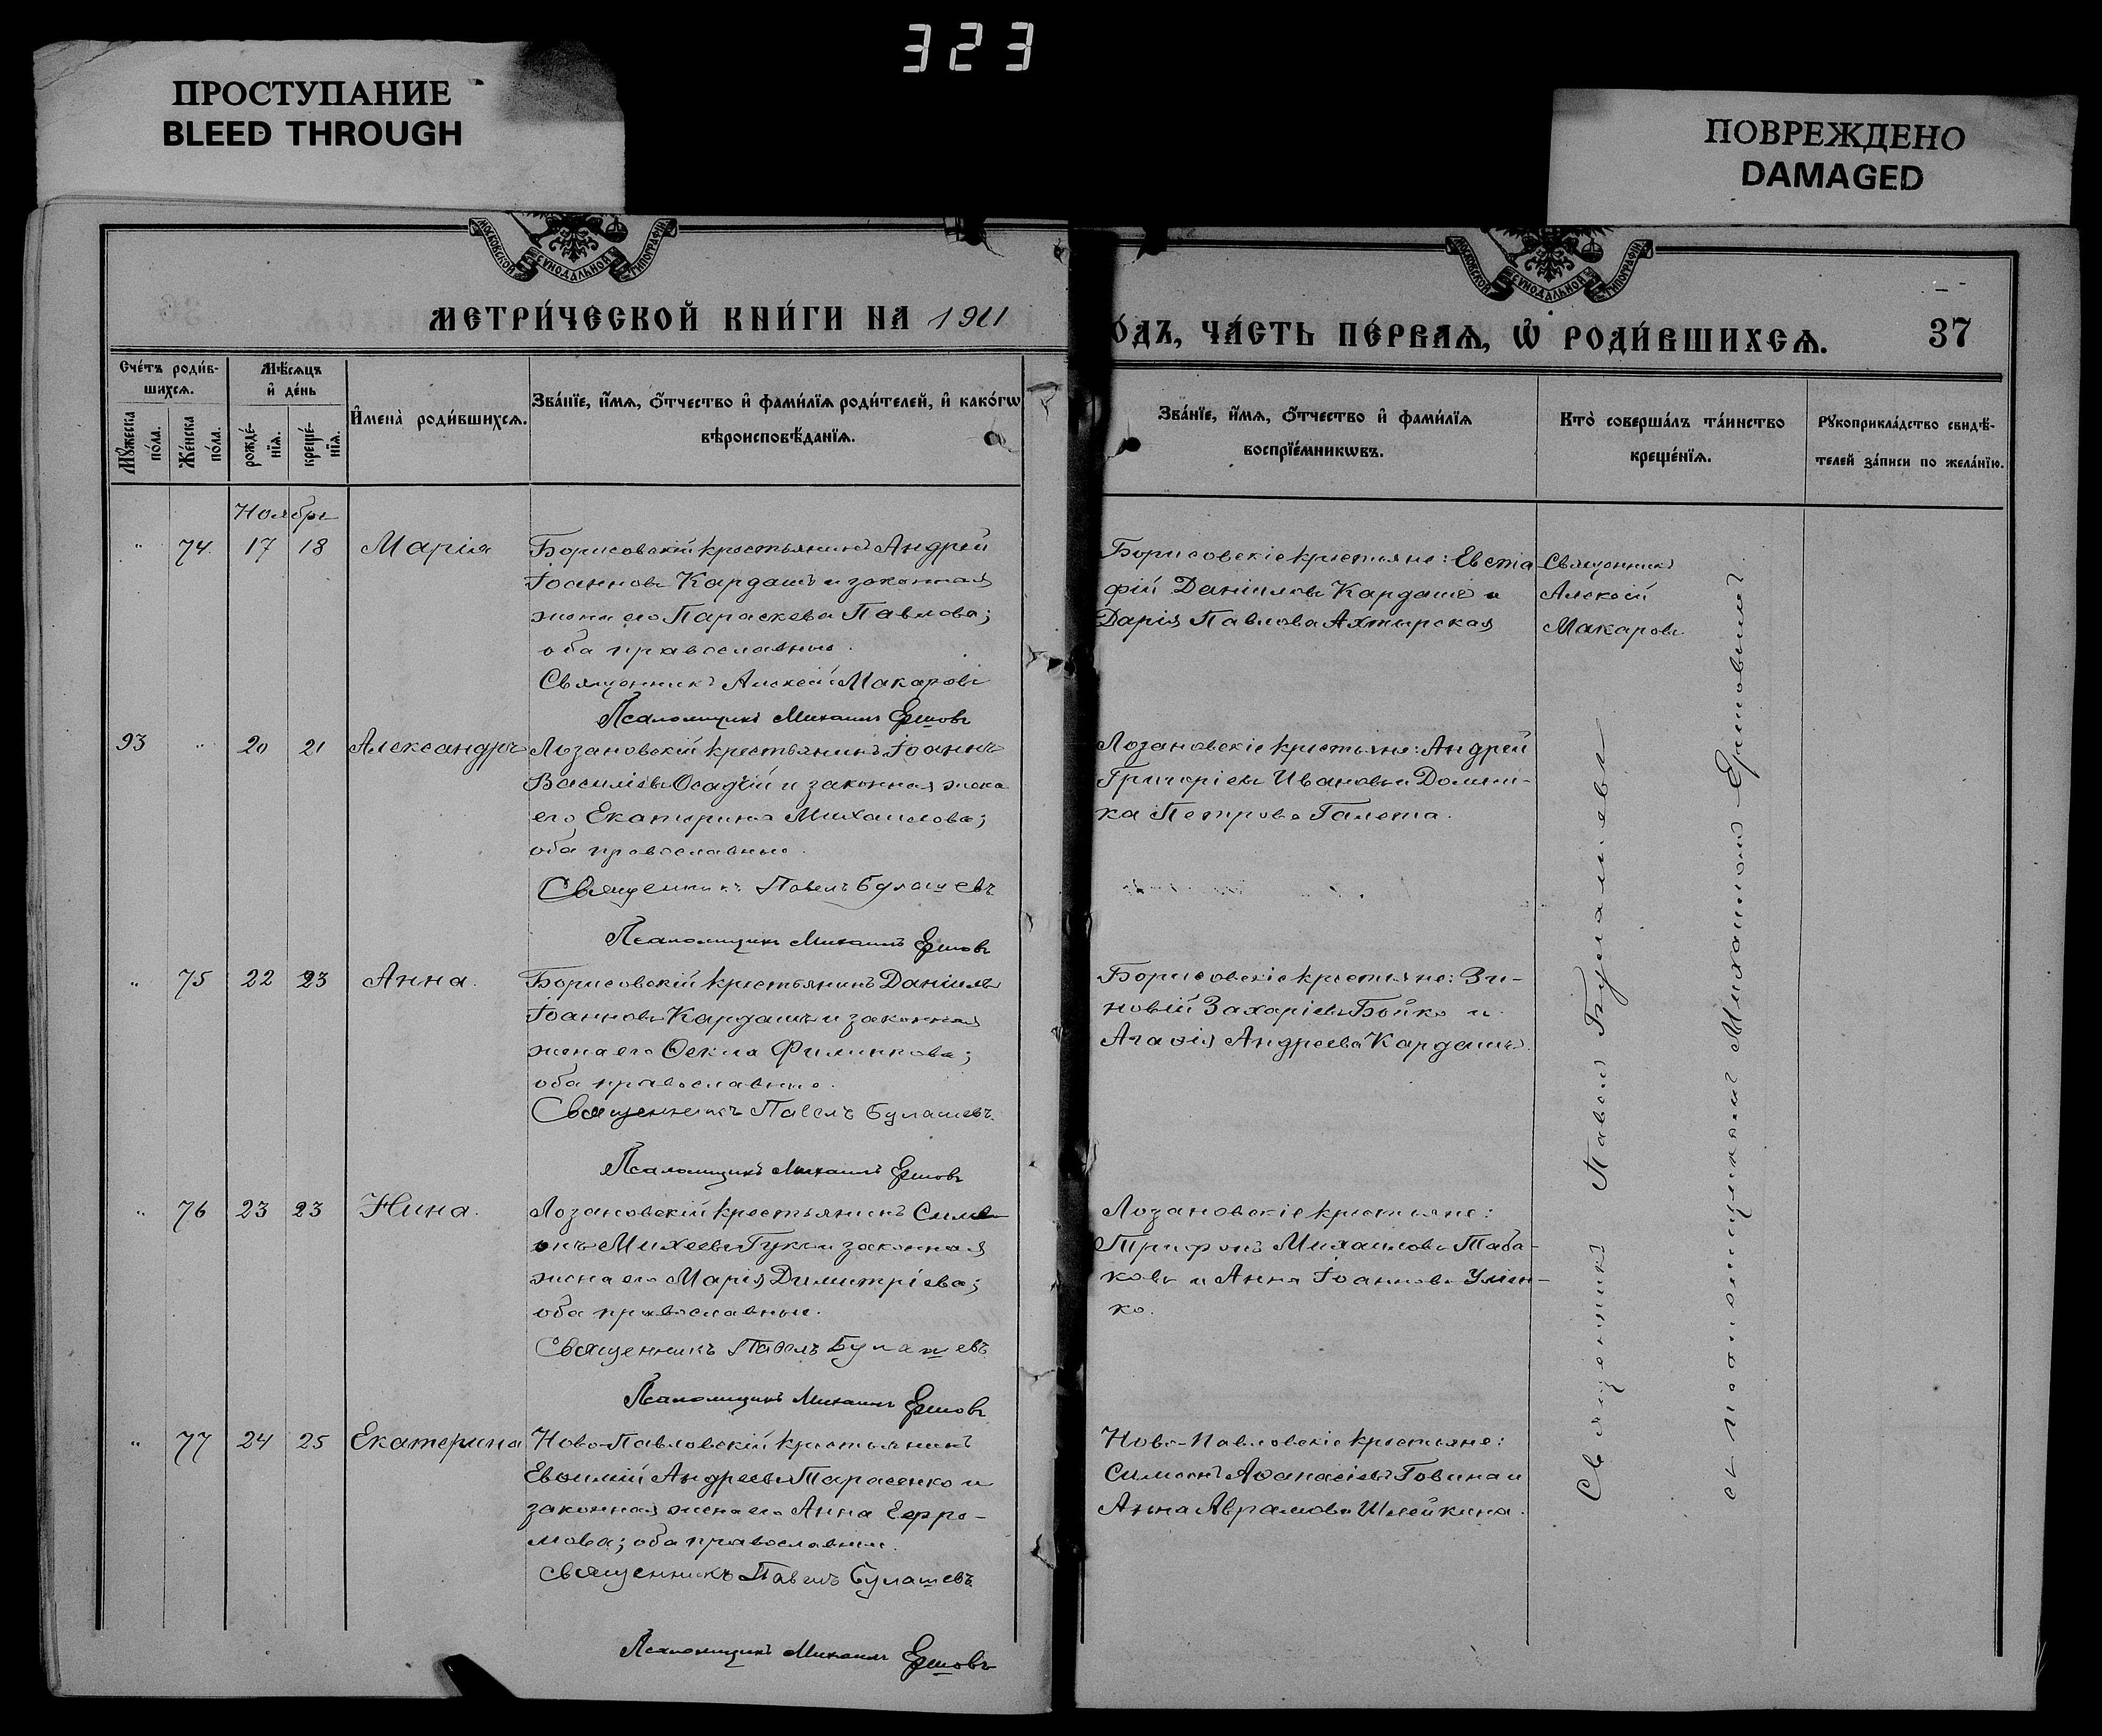 323
ПРОСТУПАНИЕ
BLEED THROUGH
ПОВРЕЖДЕНО
DAMAGED
МОСКОВСКОЙ СѴНОДАЛЬНОЙ ТИПОГРАФІИ
МОСКОВСКОЙ СѴНОДАЛЬНОЙ ТИПОГРАФІИ
МЕТРИ́ЧЕСКОЙ КНИ́ГИ НА 1911
ОДЪ, ЧА́СТЬ ПЕ́РВАѦ, Ѡ҆ РОДИ́ВШИХСѦ.
37
Сче́тъ роди́в-
шихсѧ.
Мꙋ́жеска по́ла.
Же́нска по́ла.
Мѣ́сѧцъ
и҆ де́нь
рожде́-
нїѧ.
креще́-
нїѧ.
И҆мена̀ роди́вшихсѧ.
Зва́нїе, и҆́мѧ, ѻ҆́тчество и҆ фами́лїѧ роди́телей, и҆ како́гѡ
вѣроисповѣ́данїѧ.
Зва́нїе, и҆́мѧ, ѻ҆́тчество и҆ фами́лїѧ
воспрїе́мникѡвъ.
Кто̀ соверша́лъ та́инство
креще́нїѧ.
Рꙋкоприкла́дство свидѣ́-
телей за́писи по жела́нїю.
Ноября
" 74. 17 18 Марія
Борисовскій крестьянинъ Андрей
Іоанновъ Кардашъ и законная
жена его Параскева Павлова;
оба православные.
Священникъ Алексій Макаровъ
Псаломщикъ Михаилъ Ершовъ
Борисовскіе крестьяне: Евста
фій Даніиловъ Кардашъ и
Дарія Павлова Ахтырская
Священникъ
Алексій
Макаровъ
93 " 20 21 Александръ
Лозановскій крестьянинъ Іоаннъ
Василіевъ Осадчій и законная жена
его Екатерина Михаилова;
оба православные.
Священникъ Павелъ Булашевъ
Псаломщикъ Михаилъ Ершовъ
Лозановскіе крестьяне: Андрей
Григоріевъ Ивановъ и Домни-
ка Петрова Галета.
" 75 22 23 Анна.
Борисовскій крестьянинъ Даніилъ
Іоанновъ Кардашъ и законная
жена его Ѳекла Филиппова;
оба православные.
Священникъ Павелъ Булашевъ
Псаломщикъ Михаилъ Ершовъ
Борисовскіе крестьяне: Зи-
новій Захаріевъ Бойко и
Агаѳія Андреева Кардашъ.
" 76 23 23 Нина.
Лозановскій крестьянинъ Симе
онъ Михеевъ Гукъ и законная
жена его Марія Димитріева;
оба православные.
Священникъ Павелъ Булашевъ
Псаломщикъ Михаилъ Ершовъ
Лозановскіе крестьяне:
Трифонъ Михаиловъ Таба-
ковъ и Анна Іоаннова Улен-
ко.
" 77 24 25 Екатерина
Ново-Павловскій крестьянинъ
Евѳимій Андреевъ Тарасенко и
законная жена его Анна Ефре-
мова; оба православные.
Священникъ Павелъ Булашевъ
Псаломщикъ Михаилъ Ершовъ
Ново-Павловскіе крестьяне:
Симеонъ Аѳанасіевъ Говина и
Анна Аврамова Шлейкина.
Священникъ Павелъ Булашевъ
съ псаломщикомъ Михаиломъ Ершовымъ.